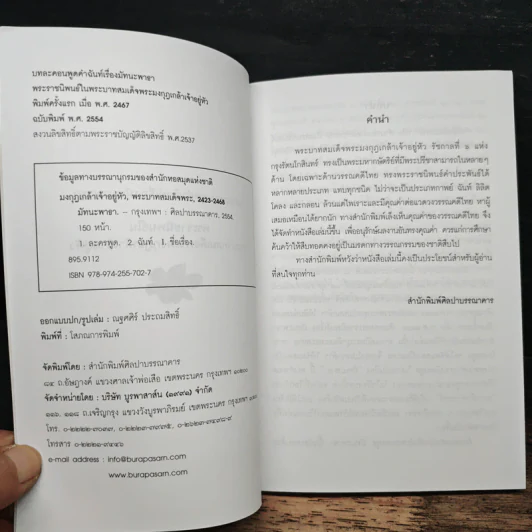 บทละคอนพูดคำฉันท์เรื่องมัทนะพาธา
พระราชนิพนธ์ในพระบาทสมเด็จพระมงกุฎเกล้าเจ้าอยู่หัว
พิมพ์ครั้งแรก เมื่อ พ.ศ. 2467
ฉบับพิมพ์ พ.ศ. 2554
สงวนลิขสิทธิ์ตามพระราชบัญญัติลิขสิทธิ์ พ.ศ.2537
ข้อมูลทางบรรณานุกรมของสำนักหอสมุดแห่งชาติ
มงกุฎเกล้าเจ้าอยู่หัว, พระบาทสมเด็จพระ, 2423-2468
มัทนะพาธา. – กรุงเทพฯ : ศิลปาบรรณาคาร, 2554.
150 หน้า.
1. ละครพูด. 2. ฉันท์. I. ชื่อเรื่อง.
895.9112
ISBN 978-974-255-702-7
ออกแบบปก/รูปเล่ม : ณฐศศิร์ ประถมสิทธิ์
พิมพ์ที่ : โสภณการพิมพ์
จัดพิมพ์โดย : สำนักพิมพ์ศิลปาบรรณาคาร
๘๔ ถ.อัษฎางค์ แขวงศาลเจ้าพ่อเสือ เขตพระนคร กรุงเทพฯ ๑๐๒๐๐
จัดจำหน่ายโดย : บริษัท บูรพาสาส์น (๑๙๙๑) จำกัด
๑๑๖, ๑๑๘ ถ.เจริญกรุง แขวงวังบูรพาภิรมย์ เขตพระนคร กรุงเทพฯ
โทรสาร ๐-๒๒๒๑-๙๔๔๖
e-mail address : info@burapasarn.com
www.burapasarn.com
คำนำ
พระบาทสมเด็จพระมงกุฎเกล้าเจ้าอยู่หัว รัชกาลที่ ๖ แห่ง
กรุงรัตนโกสินทร์ ทรงเป็นพระมหากษัตริย์ที่มีพระปรีชาสามารถในหลายๆ
ด้าน โดยเฉพาะด้านวรรณคดีไทย ทรงพระราชนิพนธ์คำประพันธ์ได้
หลากหลายประเภท แทบทุกชนิด ไม่ว่าจะเป็นประเภทกาพย์ ฉันท์ ลิลิต
โคลง และกลอน ล้วนแต่ไพเราะและมีคุณค่าต่อแวดวงวรรณคดีไทย หาผู้
เสมอเหมือนได้ยากนัก ทางสำนักพิมพ์เล็งเห็นคุณค่าของวรรณคดีไทย จึง
ได้จัดทำหนังสือเล่มนี้ขึ้น เพื่ออนุรักษ์ผลงานอันทรงคุณค่า ควรแก่การศึกษา
ค้นคว้าให้สืบทอดคงอยู่เป็นมรดกทางวรรณกรรมของชาติสืบไป
ทางสำนักพิมพ์หวังว่าหนังสือเล่มนี้คงเป็นประโยชน์สำหรับผู้อ่าน
ที่สนใจทุกท่าน
สำนักพิมพ์ศิลปาบรรณาคาร